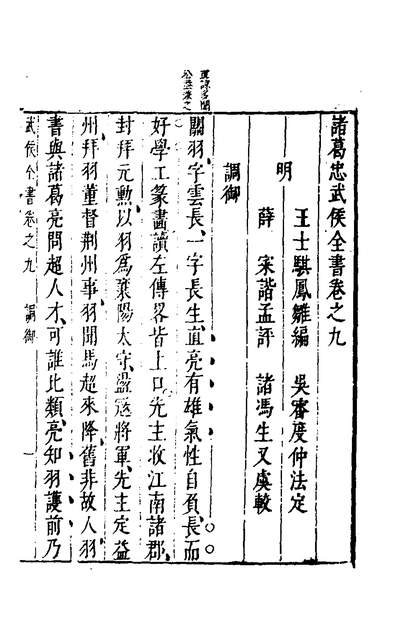 諸葛忠武侯全書卷之九
明
王士騏鳳雛編 吳睿度仲法定
薛寀諧孟評 諸馮生又虞較
調御
關羽字雲長一字長生亮有雄氣性自負長而
好學工篆畫讀左傳畧皆上口先主收江南諸郡
封拜元勲以羽爲襄陽太守盪寇將軍先主定益
州拜羽董督荊州事羽聞馬超來降舊非故人羽
書與諸葛亮問超人才可誰比類亮知羽護前乃
武侯全書卷之九 調御 一